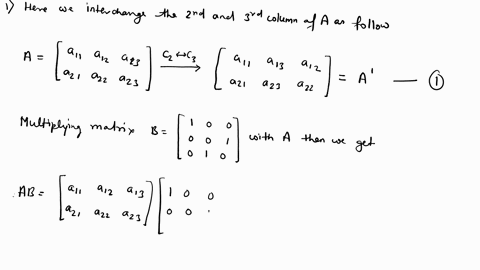 1) Here we interchange the 2nd and 3rd column of A as follow
A = [ a11 a12 a23 ; a21 a22 a23 ] C2↔C3 → [ a11 a13 a12 ; a21 a23 a22 ] = A' — ①
Multiplying matrix B = [ 1 0 0 ; 0 0 1 ; 0 1 0 ] with A then we get
AB = [ a11 a12 a13 ; a21 a22 a23 ] [ 1 0 0 ; 0 0